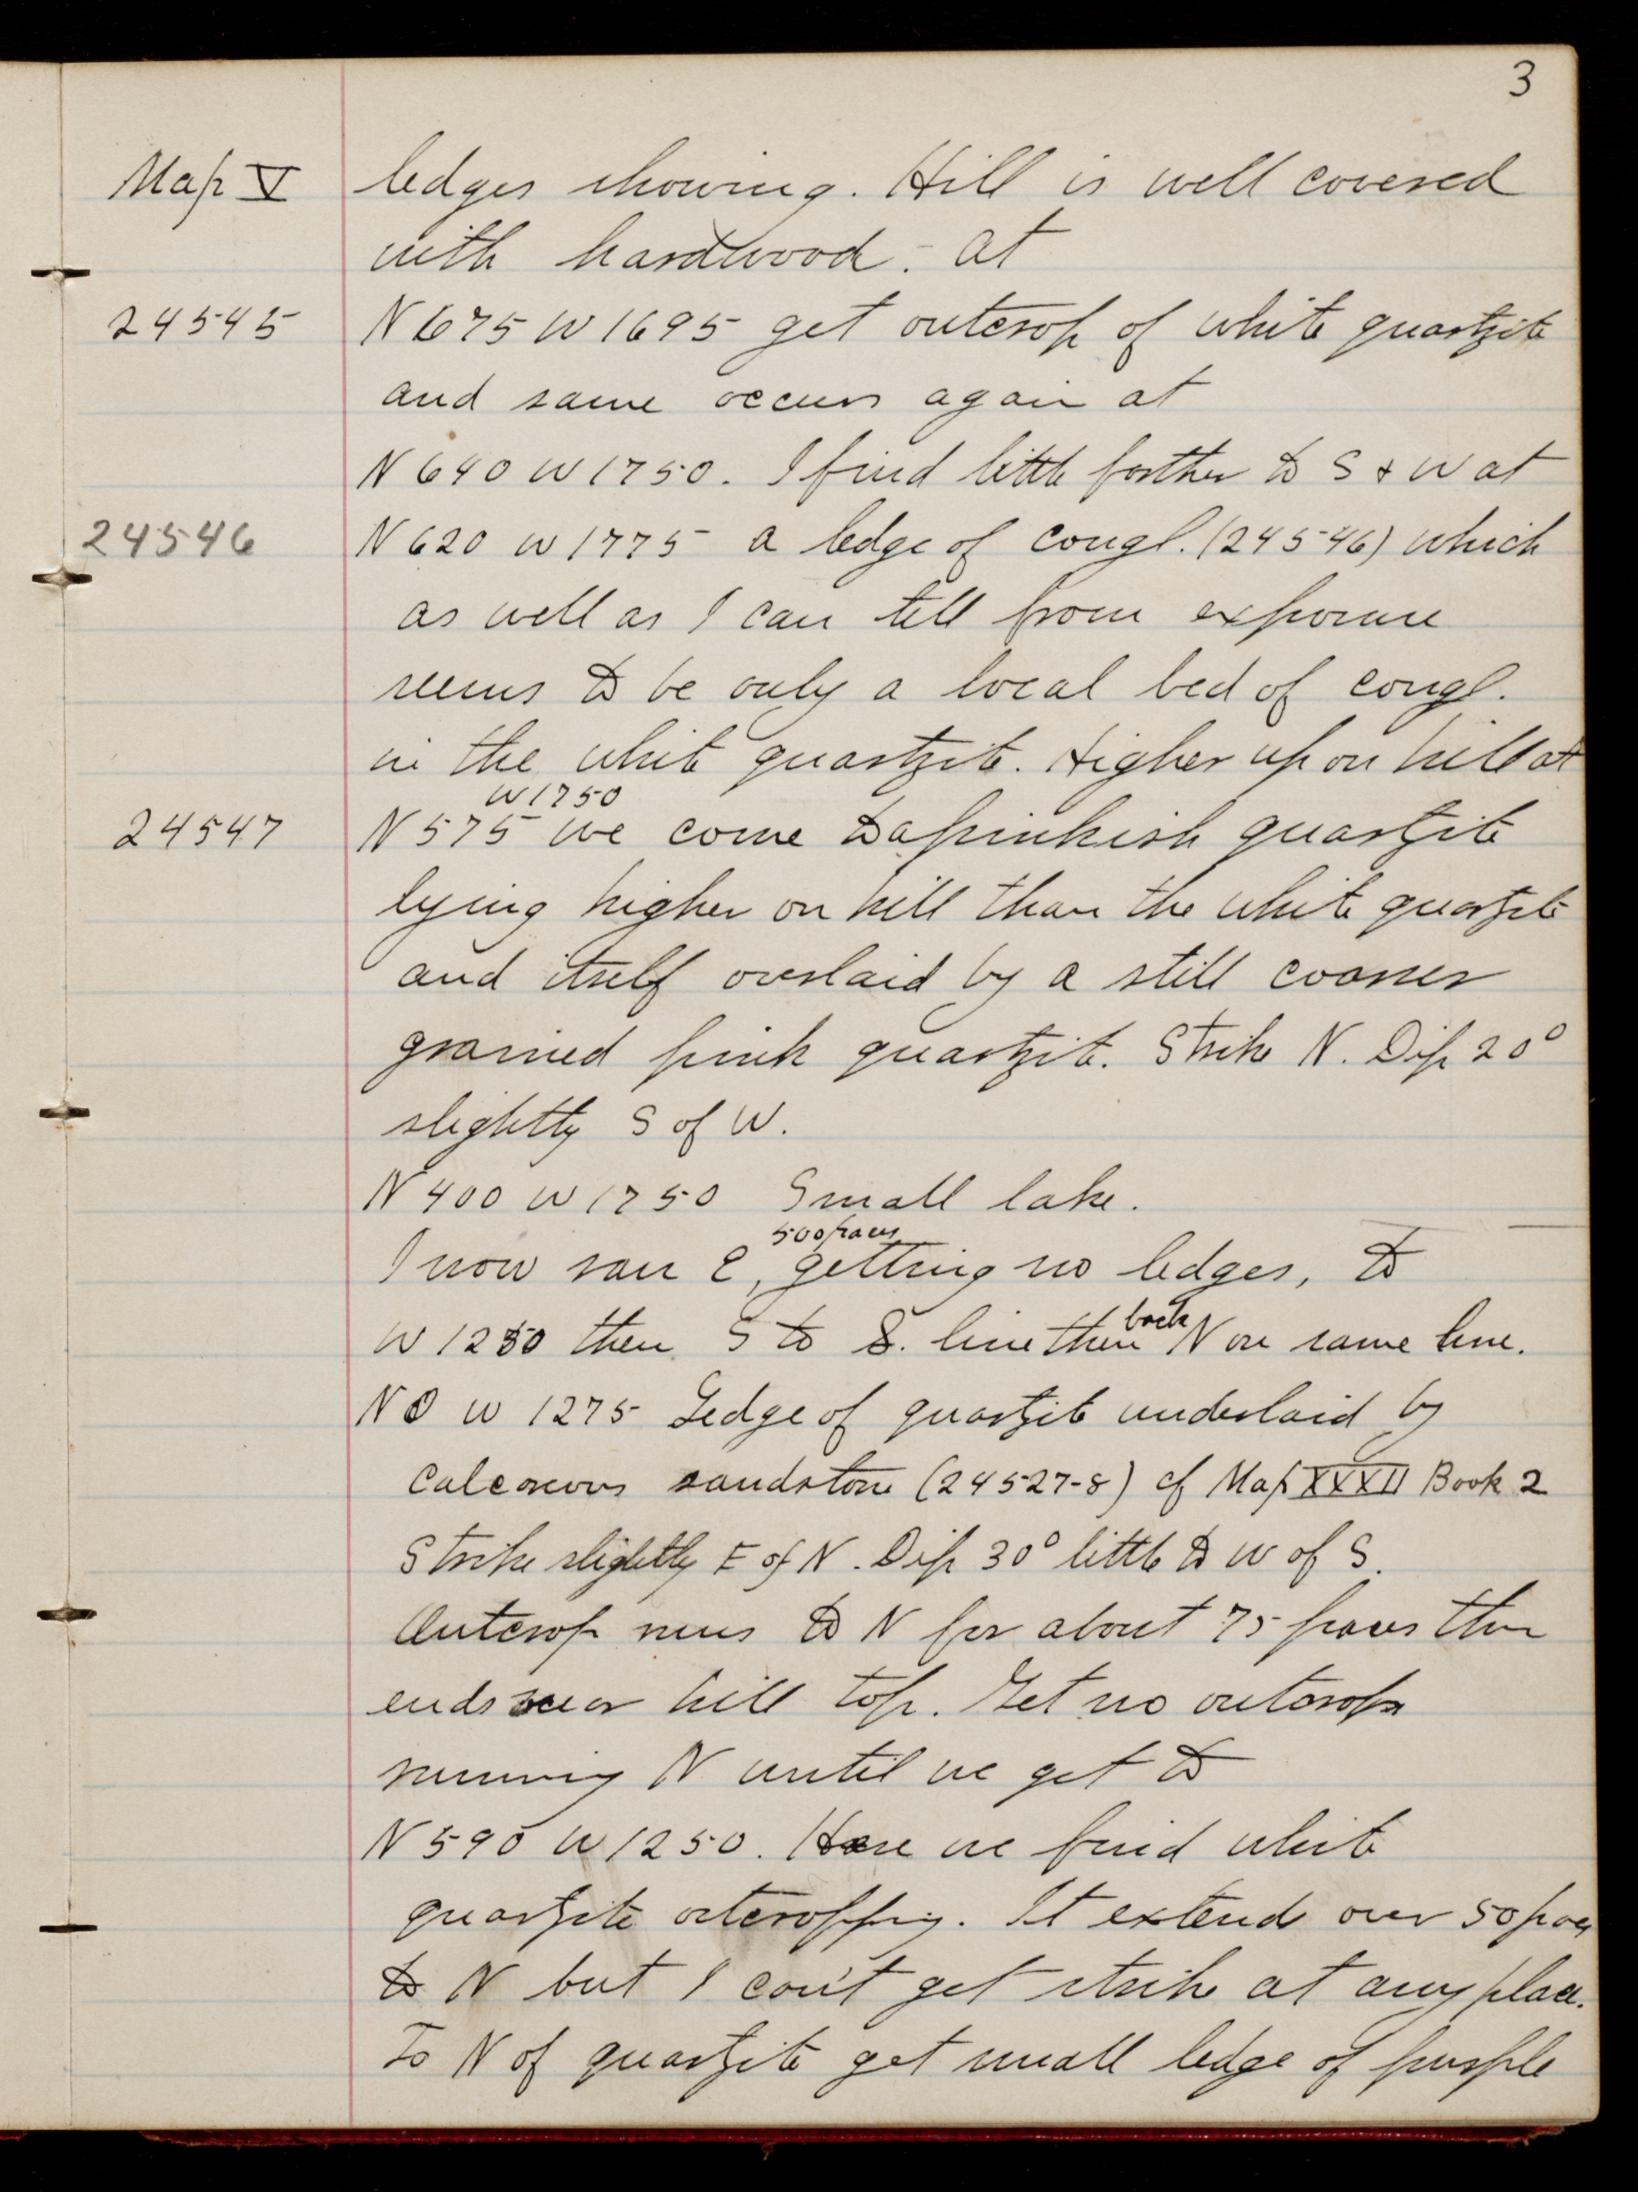 3
Map V ledges showing. Hill is well covered
with hardwood. - at
24545 N 675 W 1695 get outcrop of white quartzite
and same occurs again at
N 640 W 1750. I find little farther to S & W at
24546 N 620 W 1775 a ledge of congl. (24546) which
as well as I can tell from exposure
seems to be only a local bed of congl.
in the white quartzite. Higher up on hill at
W 1750
24547 N 575 we come to a pinkish quartzite
lying higher on hill than the white quartzite
and itself overlaid by a still coarser
grained pink quartzite. Strike N. Dip 20°
slightly S of W.
N 400 W 1750 Small lake.
500 paces
I now ran E, getting no ledges, to
back
W 1250 then S to S. line then N on same line.
N 0 W 1275 Ledge of quartzite underlaid by
Calcareous sandstone (24527-8) cf Map XXXII Book 2
Strike slightly E of N. Dip 30° little to W of S.
Outcrop runs to N for about 75 paces then
ends near hill top. Get no outcrops
running N until we get to
N 590 W 1250. Here we find white
quartzite outcropping. It extends over 50 paces
to N but I can't get strike at any place.
To N of quartzite get small ledge of purple